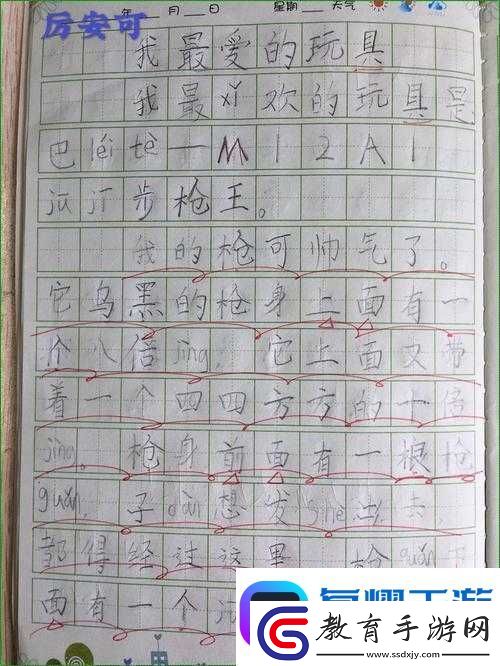 年 月 日 星期 天气
厉安可
我最爱的玩具
我最xǐ欢的玩具是
巴léi tè一M12A1
jū jī步枪王。
我的枪可帅气了。
它乌黑的枪身上面有一
个八倍jìng,它上面又带
着一个四四方方的十倍
jìng。枪身前面有一根枪
guǎn,子dàn想发shè出去,
都得经过这里。枪guǎn下
面有一个
教育手游网
www.ssdxjy.com